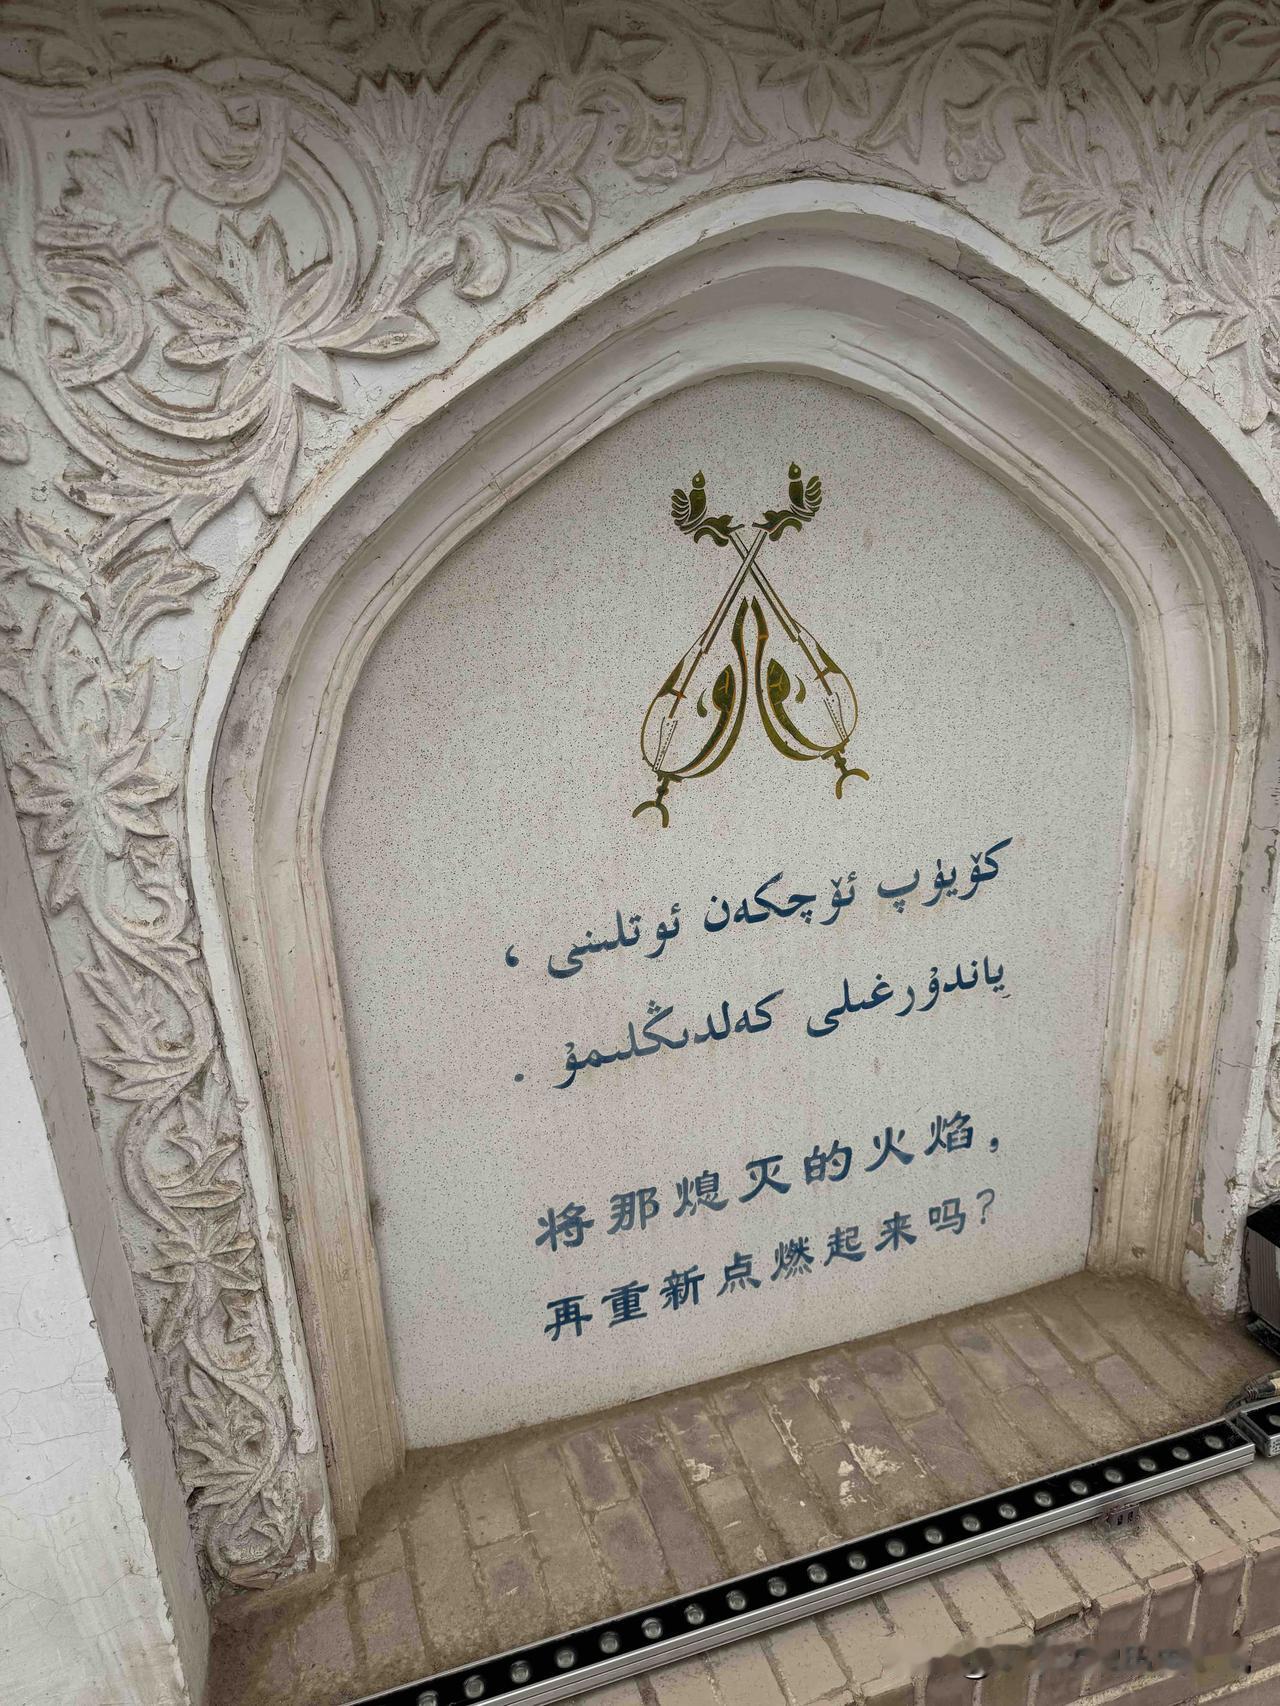 كۆيۈپ ئۆچكەن ئوتلىنى ،
ياندۇرغىلى كەلدىڭلىمۇ .
将那熄灭的火焰，
再重新点燃起来吗？